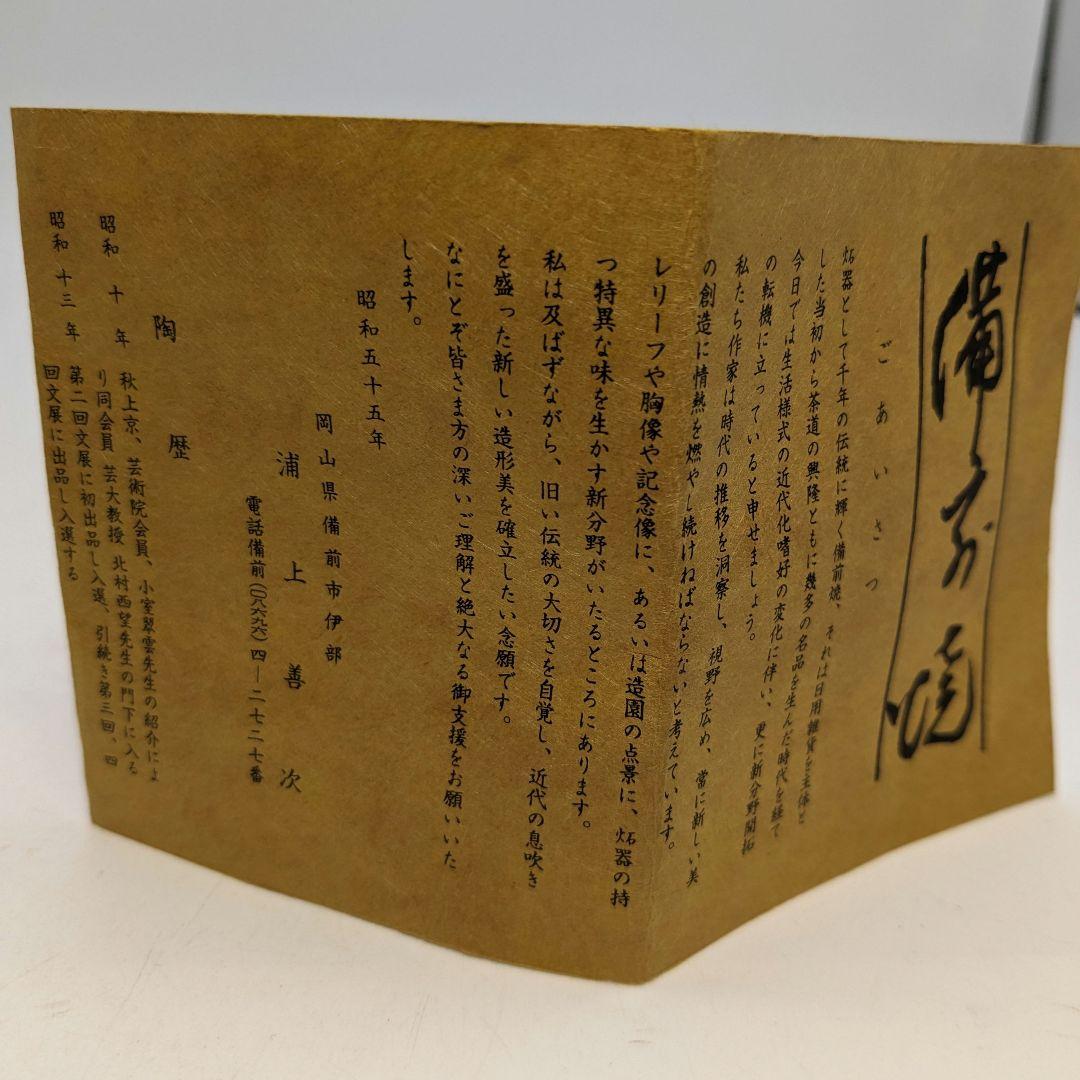 備前焼
ごあいさつ
炻器として千年の伝統に輝く備前焼、それは日用雑貨を主体と
した当初から茶道の興隆とともに幾多の名品を生んだ時代を経て
今日では生活様式の近代化嗜好の変化に伴い、更に新分野開拓
の転機に立っていると申せましょう。
私たち作家は時代の推移を洞察し、視野を広め、常に新しい美
の創造に情熱を燃やし続けねばならないと考えています。
レリーフや胸像や記念像に、あるいは造園の点景に、炻器の持
つ特異な味を生かす新分野がいたるところにあります。
私は及ばずながら、旧い伝統の大切さを自覚し、近代の息吹き
を盛った新しい造形美を確立したい念願です。
なにとぞ皆さま方の深いご理解と絶大なる御支援をお願いいた
します。
昭和五十五年
岡山県備前市伊部
浦上善次
電話備前(〇八六九六)四ー二七二七番
陶歴
昭和十年 秋上京、芸術院会員、小室翠雲先生の紹介によ
り同会員 芸大教授 北村西望先生の門下に入る
昭和十三年 第二回文展に初出品し入選、引続き第三回、四
回文展に出品し入選する